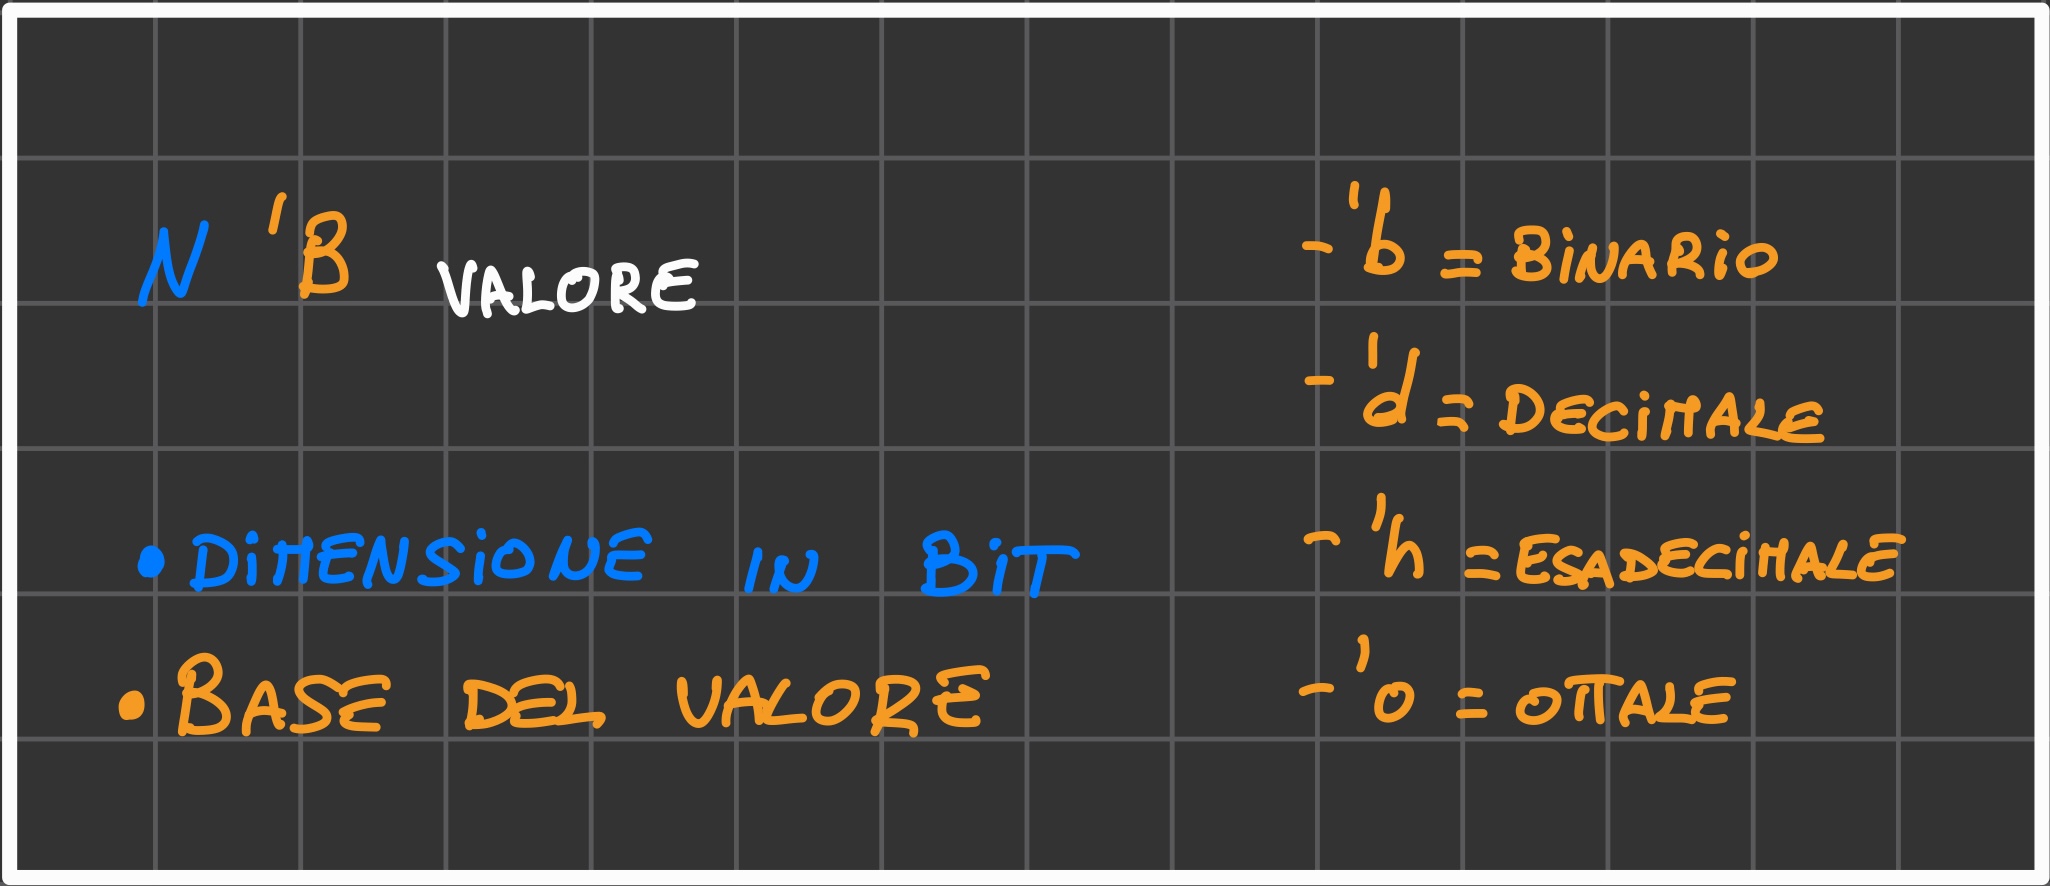 N 'B VALORE
• DiMENSiONE IN BiT
• BASE DEL VALORE
- 'b = BiNARiO
- 'd = DECiMALE
- 'h = ESADECiMALE
- 'o = OTTALE